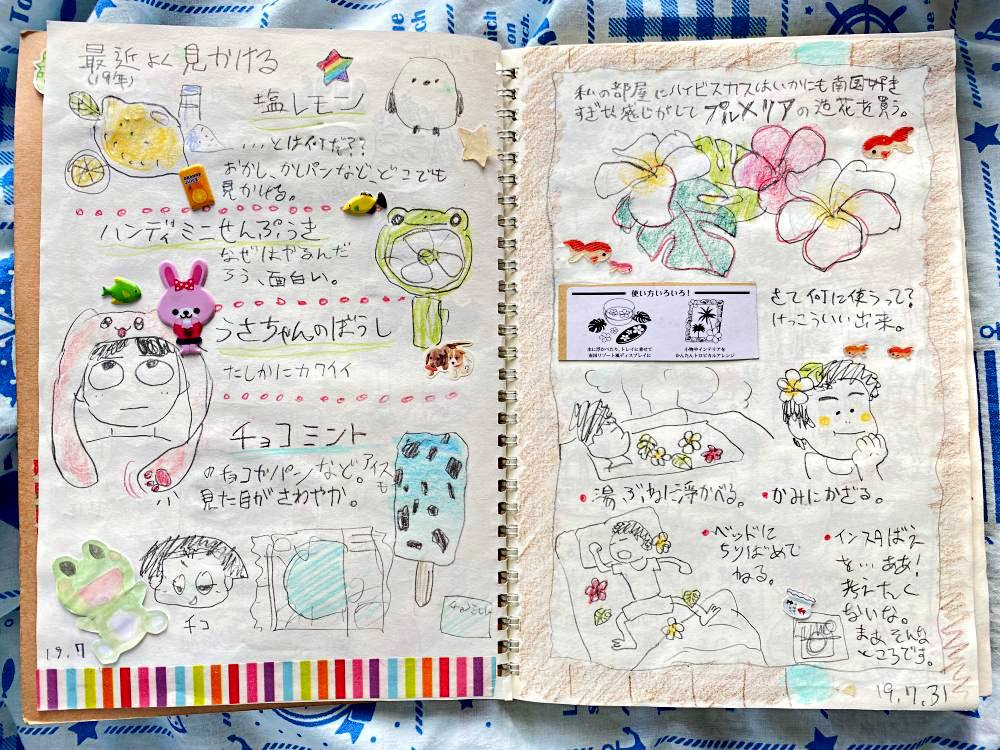 最近よく見かける
(19年)
塩レモン
…とは何だ??
おかし、かしパンなど、どこでも
見かける。
ORANGE
JUICE
ハンディミニせんぷうき
なぜはやるんだ
ろう、面白い。
うさちゃんのぼうし
たしかにカワイイ
チョコミント
のチョコやパンなど。アイスも
見た目がさわやか。
チコ
チョコミント
19.7
私の部屋にハイビスカスはいかにも南国好き
すぎせ感じがして プルメリアの造花を買う。
さて何に使うって?
けっこういい出来。
使い方いろいろ!
水に浮かべたり、トレイに乗せて
南国リゾート風ディスプレイに
小物やインテリアを
かんたんトロピカルアレンジ
・湯ぶねに浮かべる。
・かみにかざる。
・ベッドに
ちりばめて
ねる。
・インスタばえ
を…ああ!
考えたく
ないな。
まあそんな
ところです。
19.7.31